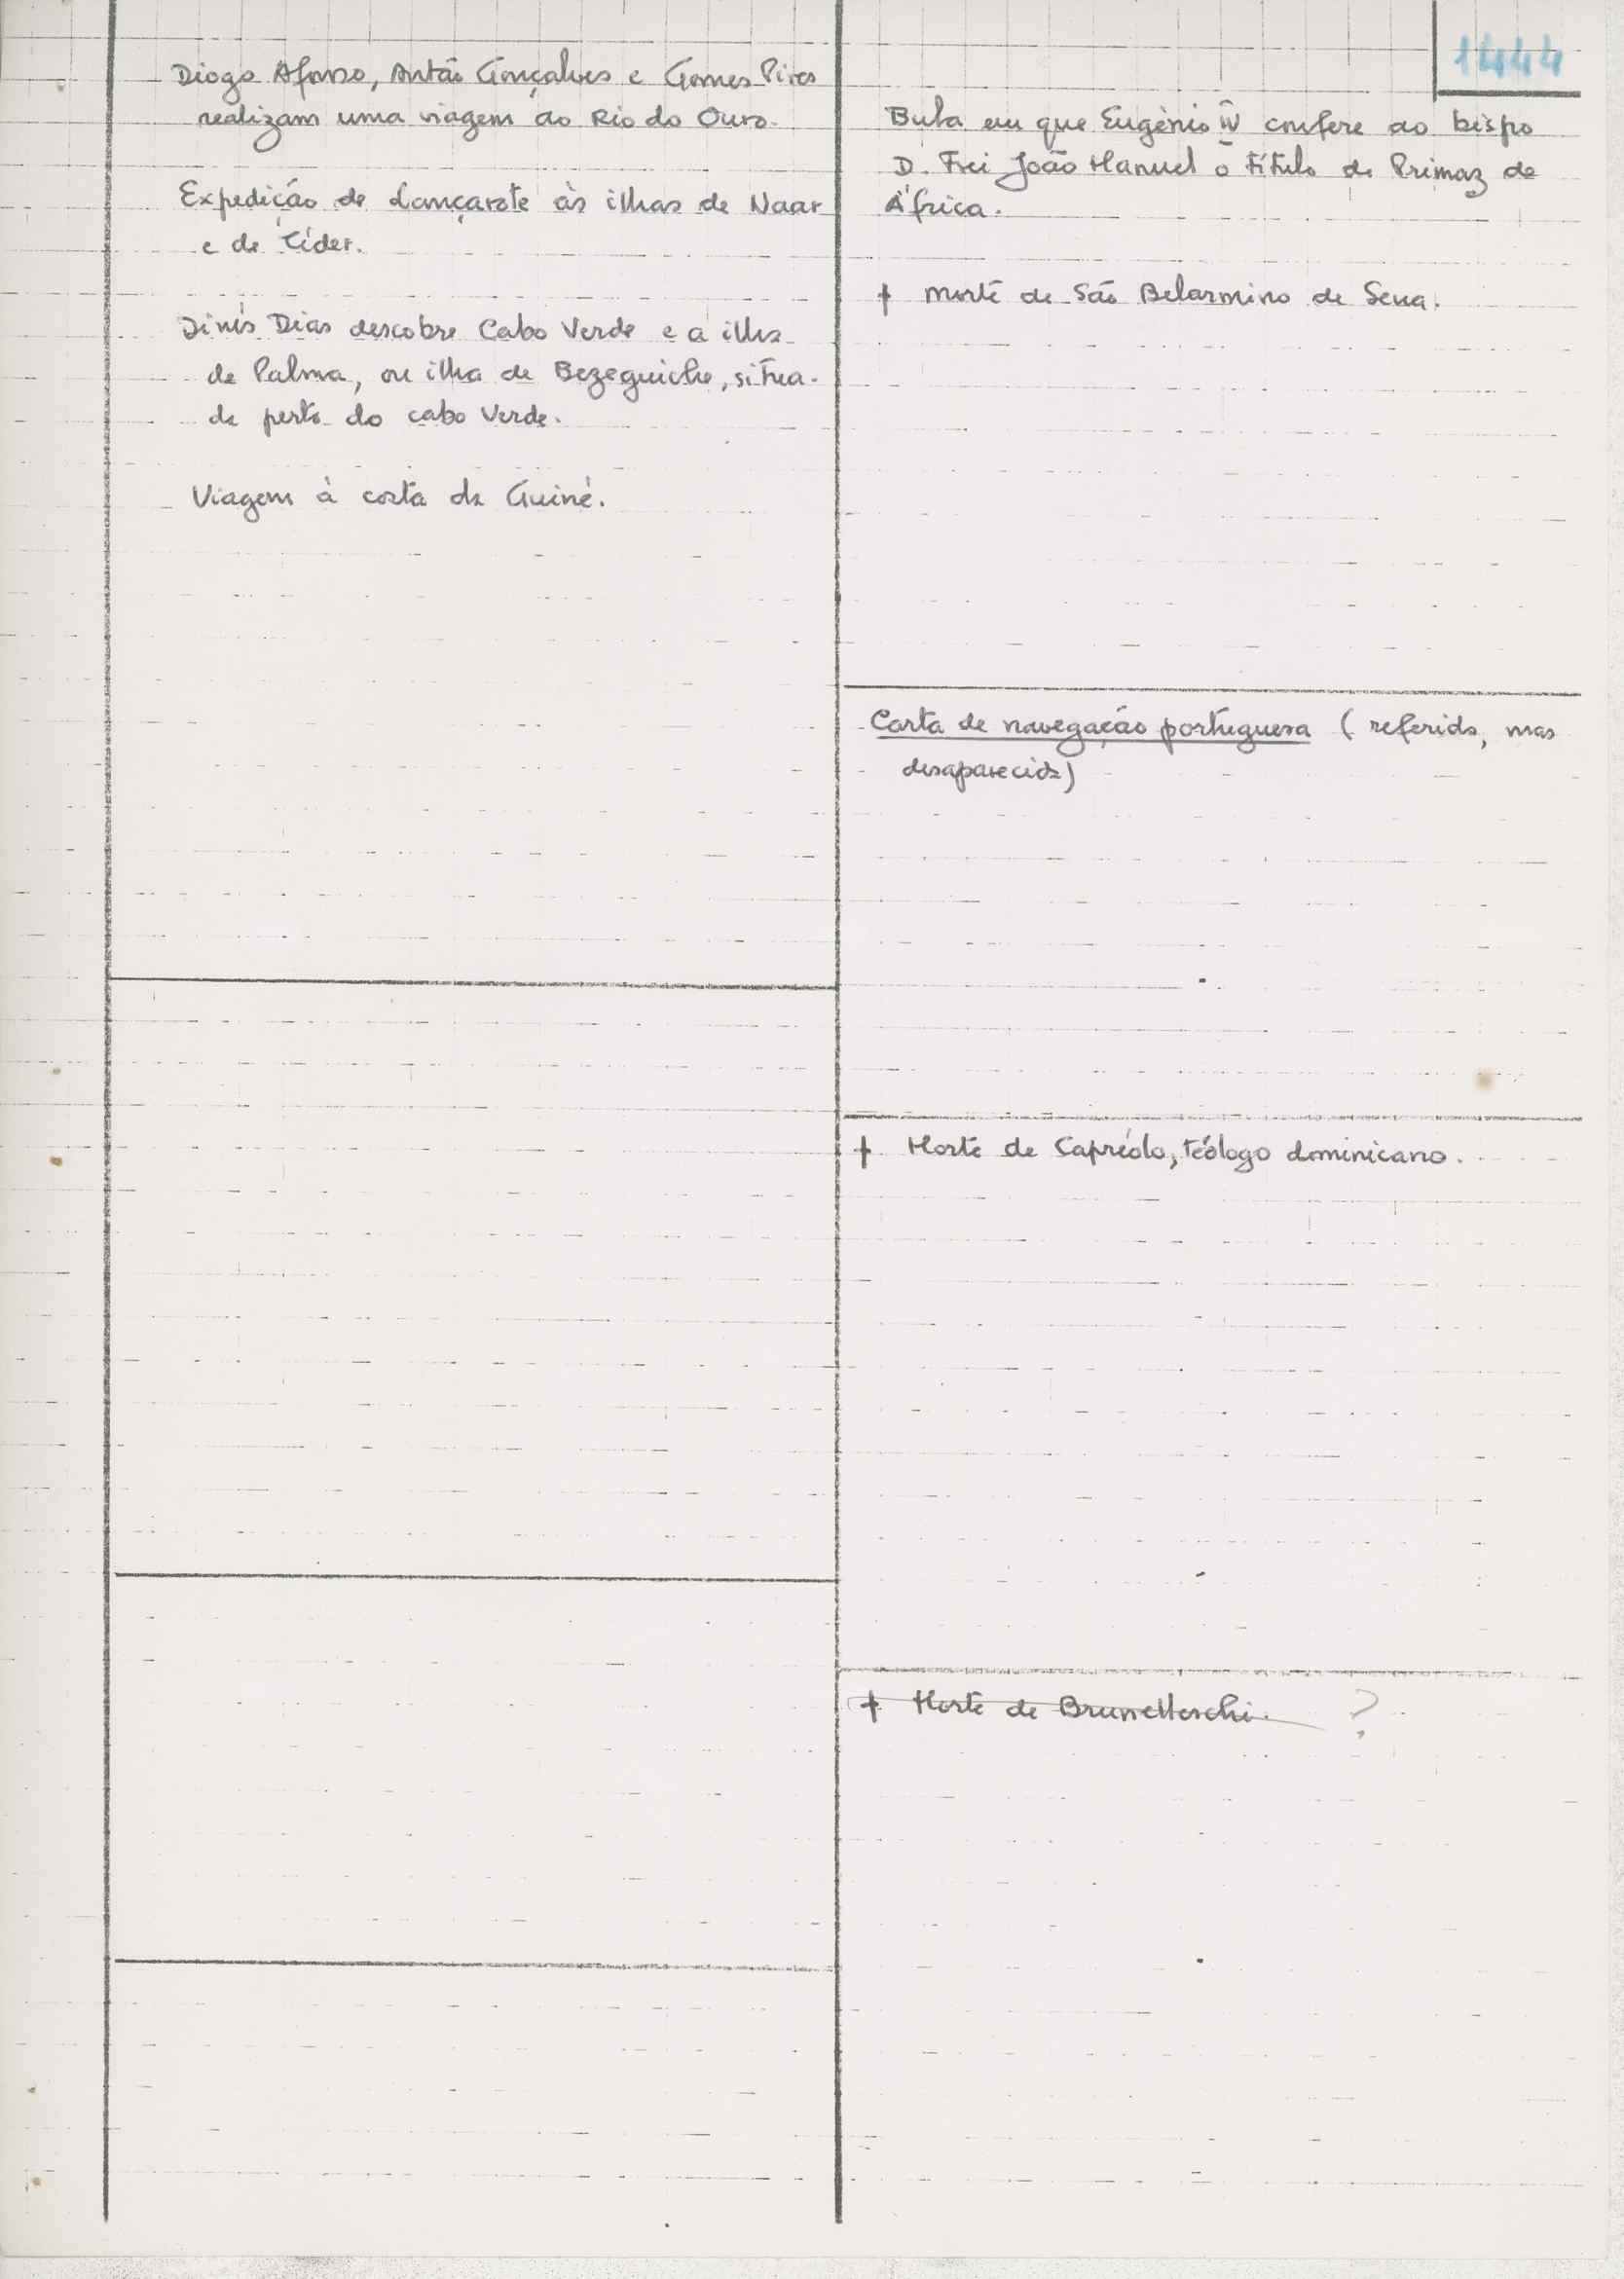 1444
Diogo Afonso, Antão Gonçalves e Gomes Pires
realizam uma viagem ao Rio do Ouro.
Expedição de Lançarote às ilhas de Naar
e de Tíder.
Dinis Dias descobre Cabo Verde e a ilha
de Palma, ou ilha de Bezeguiche, situa-
da perto do cabo Verde.
Viagem à costa da Guiné.
Bula em que Eugénio IV confere ao bispo
D. Frei João Manuel o título de Primaz de
África.
† morte de São Belarmino de Sena.
Carta de navegação portuguesa (referida, mas
desaparecida)
† Morte de Capréolo, teólogo dominicano.
† Morte de Brunelleschi. ?